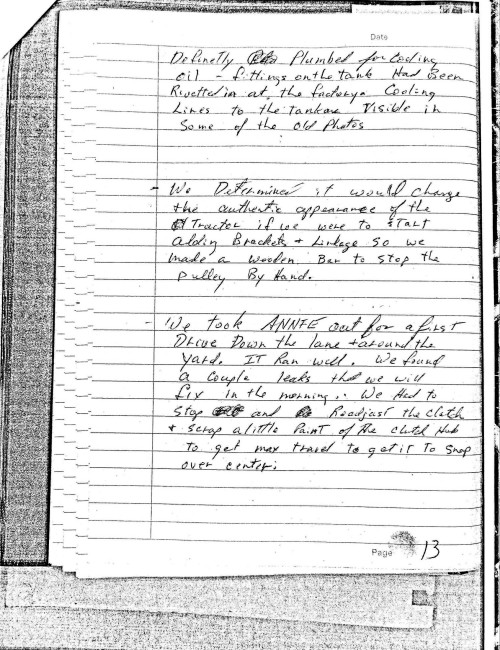 Date
Definetly Plumbed for Cooling
oil - fittings on the tank Had Been
Rivetted in at the factory. Cooling
Lines to the tank are Visible in
Some of the Old Photos
- We Determined it would change
the authentic appearance of the
Tractor if we were to START
adding Brackets + Linkage so we
made a wooden Bar to Stop the
pulley By Hand.
- We took ANNIE out for a first
Drive Down the lane + around the
Yard. IT Ran well. We found
a couple leaks that we will
fix in the morning. We Had to
Stop and Readjust the Clutch
+ scrap a little Paint of the Clutch Hub
to get max travel to get it To Snap
over center.
Page 13